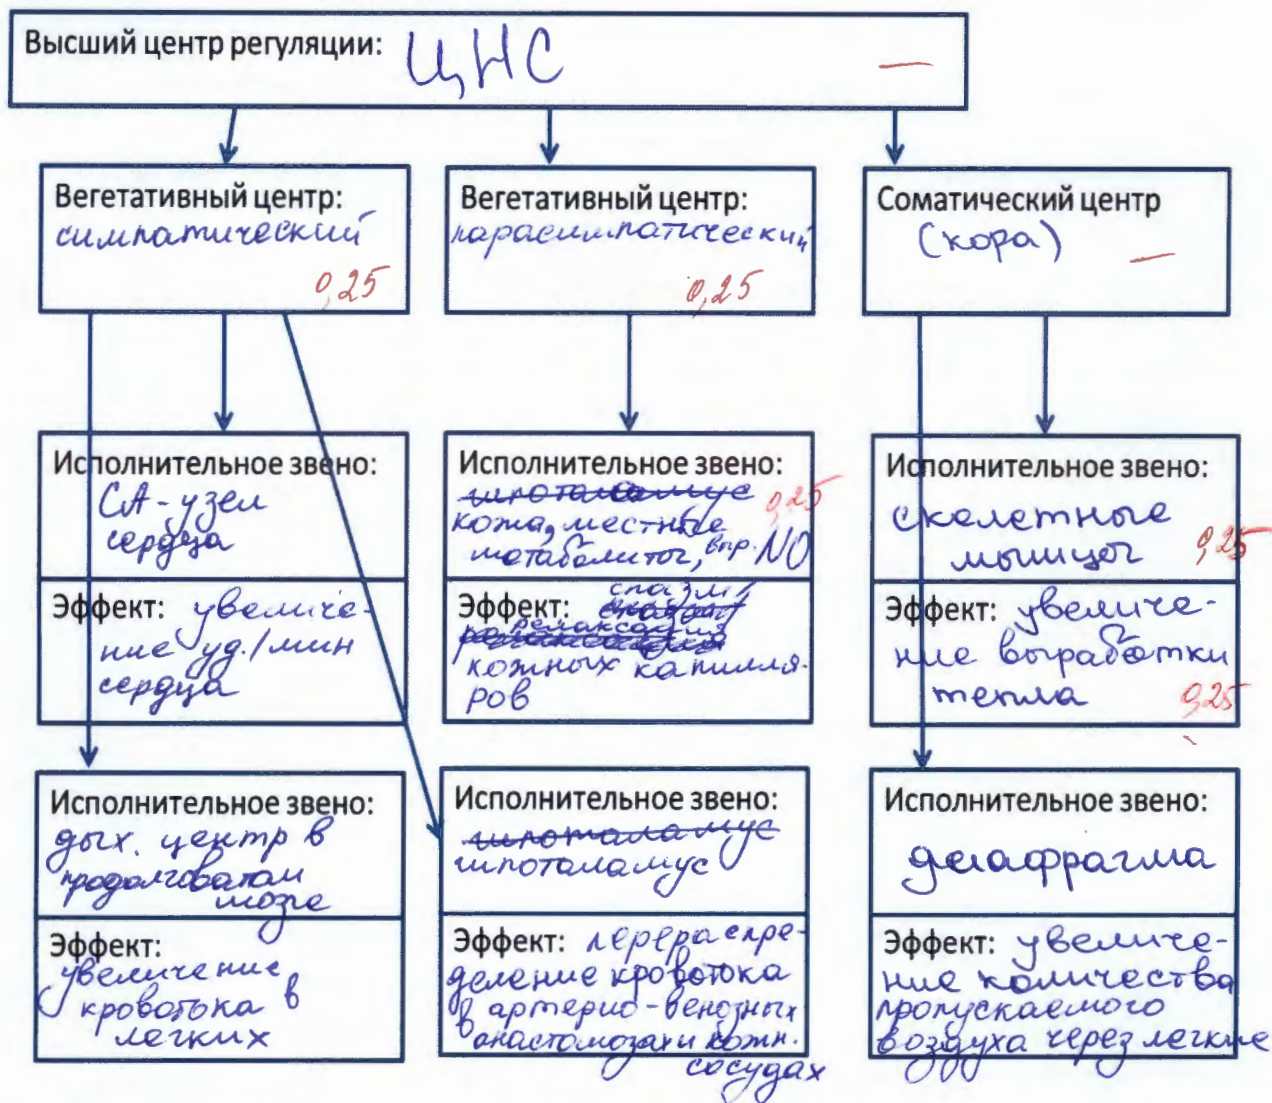 Высший центр регуляции: ЦНС —
Вегетативный центр:
симпатический
0,25
Вегетативный центр:
парасимпатический
0,25
Соматический центр
(кора) —
Исполнительное звено:
СА-узел
сердца
Эффект: увеличе-
ние уд./мин
сердца
Исполнительное звено:
гипоталамус 0,25
кожа, местные
метаболиты, впр. NO
Эффект: спазм и
релаксация
кожных капилля-
ров
Исполнительное звено:
скелетные
мышцы 0,25
Эффект: увеличе-
ние выработки
тепла 0,25
Исполнительное звено:
дых. центр в
продолговатом
мозге
Эффект:
увеличение
кровотока в
легких
Исполнительное звено:
гипоталамус
гипоталамус
Эффект: перераспре-
деление кровотока
в артерио-венозных
анастомозах и кожн.
сосудах
Исполнительное звено:
диафрагма
Эффект: увеличе-
ние количества
пропускаемого
воздуха через легкие